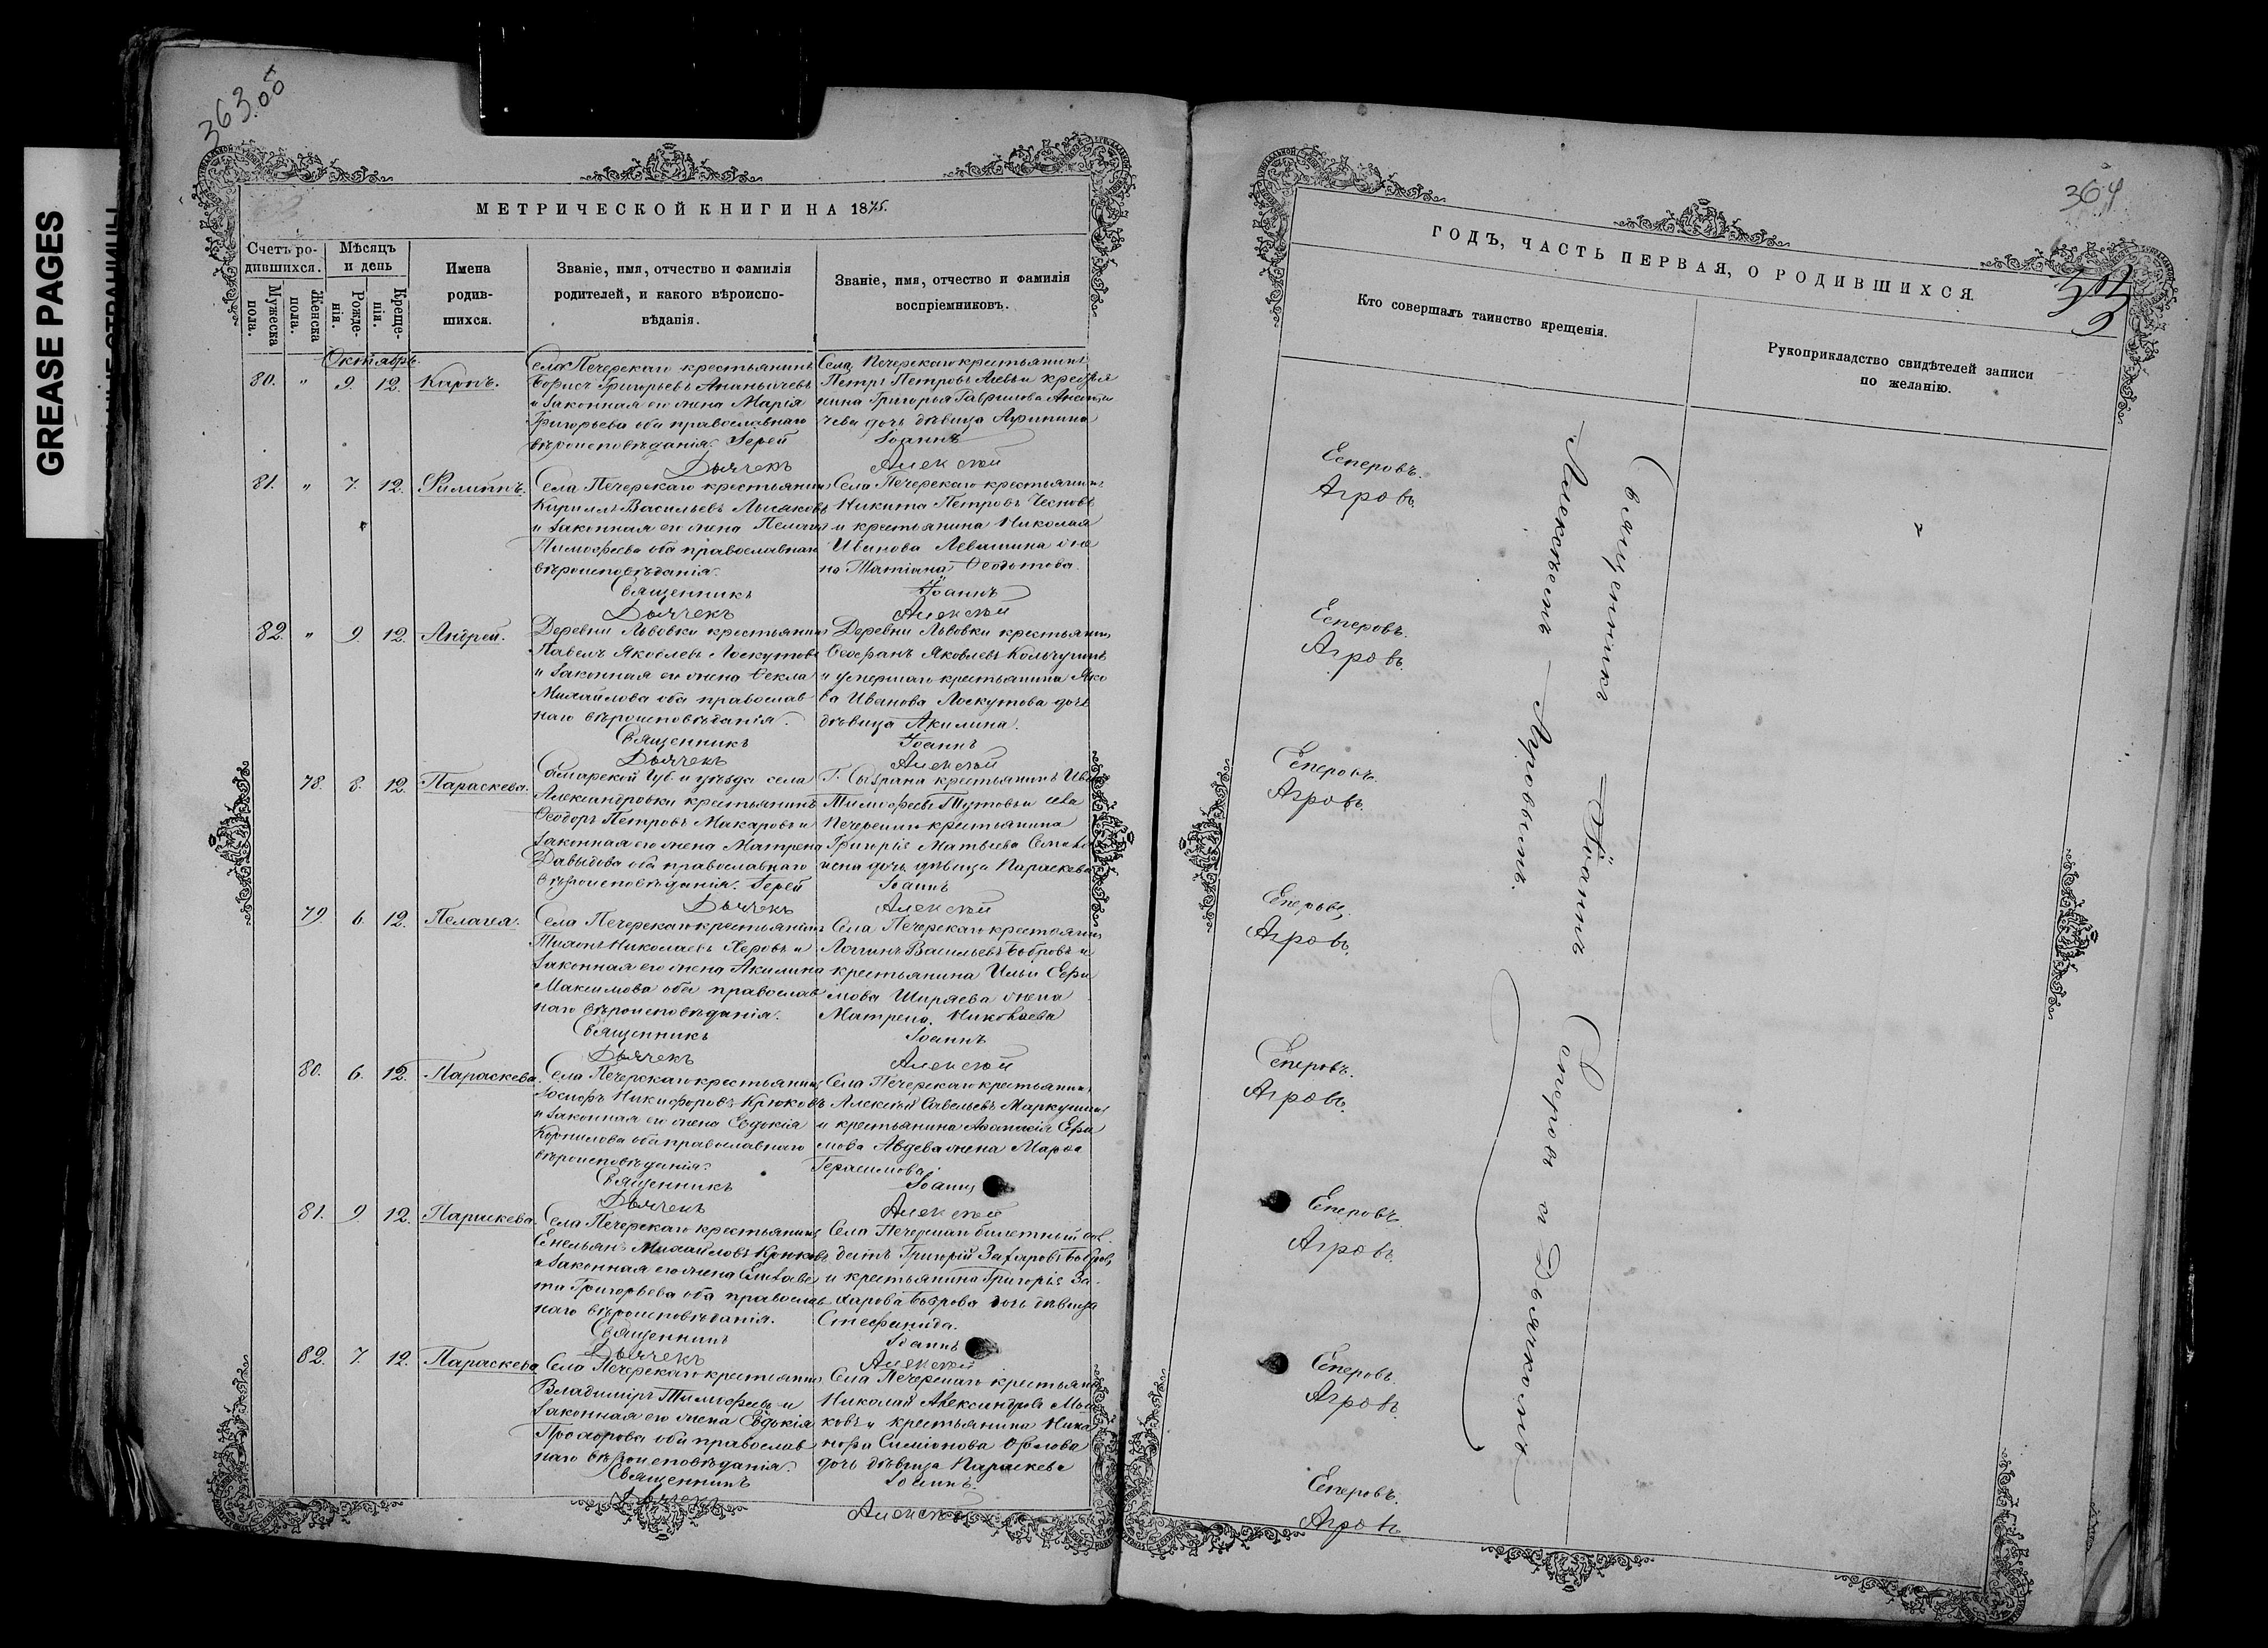 GREASE PAGES
363.об
МЕТРИЧЕСКОЙ КНИГИ НА 1875.
Счетъ ро-
дившихся.
Мужеска
пола.
Женска
пола.
Мѣсяцъ
и день
Рожде-
нія.
Креще-
нія.
Имена
родив-
шихся.
Званіе, имя, отчество и фамилія
родителей, и какого вѣроиспо-
вѣданія.
Званіе, имя, отчество и фамилія
воспріемниковъ.
Октябрь.
80. " 9. 12. Карпъ.
Села Печерскаго крестьянинъ
Борисъ Григорьевъ Ананьичевъ
и законная его жена Марія
Григорьева оба православнаго
вѣроисповѣданія. Іерей
Дьячекъ
Села Печерскаго крестьянинъ
Петръ Петровъ и крестья
нина Григорья Гаврилова
чева дочь дѣвица Агрипина
Іоаннъ
Алексѣй
81. " 7. 12. Филиппъ.
Села Печерскаго крестьянинъ
Кириллъ Васильевъ Лысаковъ
и законная его жена Пелагія
Тимофеева оба православнаго
вѣроисповѣданія.
Священникъ
Дьячекъ
Села Печерскаго крестьянинъ
Никита Петровъ Чесновъ
и крестьянина Николая
Иванова Левашина жена
Татіана Ѳедотова.
Іоаннъ
Алексѣй
82. " 9. 12. Андрей.
Деревни Львовки крестьянинъ
Павелъ Яковлевъ Лоскутовъ
и законная его жена Ѳекла
Михайлова оба православ
наго вѣроисповѣданія.
Священникъ
Дьячекъ
Деревни Львовки крестьянинъ
Ѳеофанъ Яковлевъ Кольчугинъ
и умершаго крестьянина Яко
ва Иванова Лоскутова дочь
дѣвица Акилина.
Іоаннъ
Алексѣй
78. 8. 12. Параскева.
Самарской Губ. и уѣзда села
Александровки крестьянинъ
Ѳеодоръ Петровъ Макаровъ и
законная его жена Матрена
Давыдова оба православнаго
вѣроисповѣданія. Іерей
Дьячекъ
Г. Сызрана крестьянинъ
Тимофеевъ Тутовъ и села
Печерскаго крестьянина
Григорія Матвеева
дочь дѣвица Параскева
Іоаннъ
Алексѣй
79 6. 12. Пелагея.
Села Печерскаго крестьянинъ
Николаевъ и
законная его жена Акилина
Максимова оба православ
наго вѣроисповѣданія.
Священникъ
Дьячекъ
Села Печерскаго крестьянинъ
Логинъ Васильевъ Бобровъ и
крестьянина Ильи Ефи
мова Ширяева жена
Матрена Николаева
Іоаннъ
Алексѣй
80. 6. 12. Параскева.
Села Печерскаго крестьянинъ
Іосифъ Никифоровъ Крюковъ
и законная его жена Евдокія
Корнилова оба православнаго
вѣроисповѣданія.
Священникъ
Дьячекъ
Села Печерскаго крестьянинъ
Алексѣй Савельевъ Маркушинъ
и крестьянина Аѳанасія Ефи
мова Авдева жена Марѳа
Герасимова.
Іоаннъ
Алексѣй
81. 9. 12. Параскева.
Села Печерскаго крестьянинъ
Емельянъ Михайловъ Крюковъ
и законная его жена Елизаве
та Григорьева оба православ
наго вѣроисповѣданія.
Священникъ
Дьячекъ
Села Печерскаго билетный сол-
датъ Григорій Захаровъ Бобровъ
и крестьянина Григорія За-
харова Боброва дочь дѣвица
Стефанида.
Іоаннъ
Алексѣй
82. 7. 12. Параскева
Села Печерскаго крестьянинъ
Владиміръ Тимофеевъ и
законная его жена Евдокія
Прохорова оба православ
наго вѣроисповѣданія.
Священникъ
Дьячекъ
Села Печерскаго крестьянинъ
Николай Александровъ
ковъ и крестьянина Ника
нора Симіонова Орлова
дочь дѣвица Параскева
Іоаннъ.
Алексѣй
364
ГОДЪ, ЧАСТЬ ПЕРВАЯ, О РОДИВШИХСЯ.
Кто совершалъ таинство крещенія.
Рукоприкладство свидѣтелей записи
по желанію.
Есперовъ.
Агровъ.
Есперовъ.
Агровъ.
Есперовъ.
Агровъ.
Есперовъ.
Агровъ.
Есперовъ.
Агровъ.
Есперовъ.
Агровъ.
Есперовъ.
Агровъ.
Есперовъ.
Агровъ.
Священникъ Іоаннъ Есперовъ съ Дьячкомъ
Алексѣемъ Агровымъ.